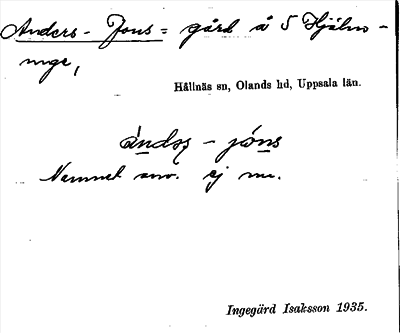 Anders-Jons = gård å S Hjälm-
unge,
Hållnäs sn, Olands hd, Uppsala län.
ándəʂ - jóns
Namnet anv. ej nu.
Ingegärd Isaksson 1935.